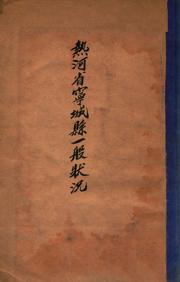 熱河省寧城縣一般狀況